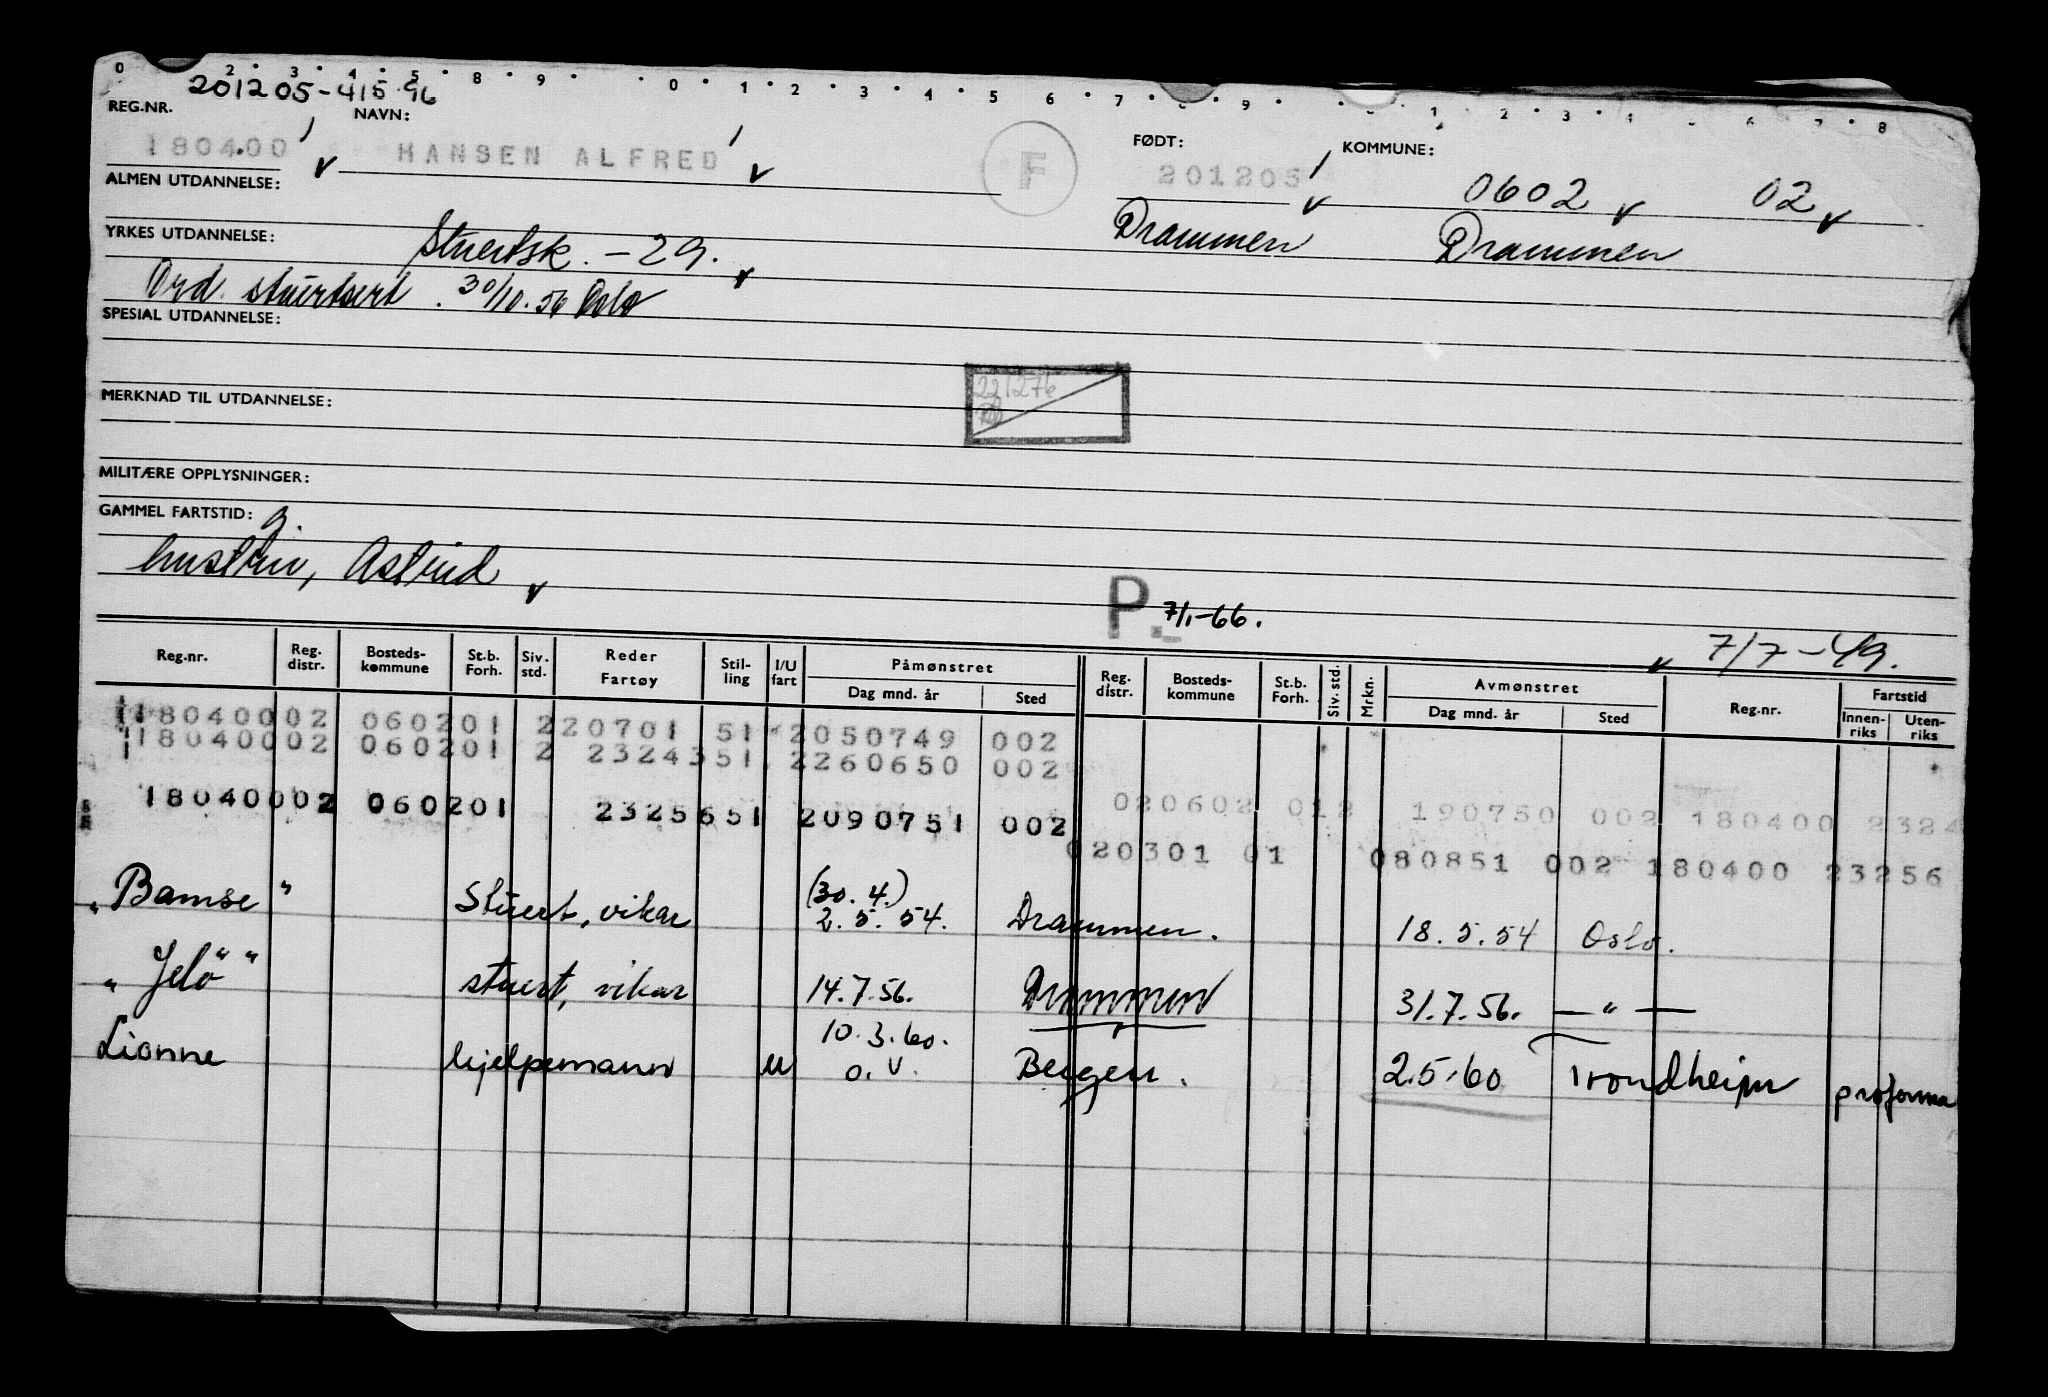 0 2 3 4 5 8 9 0 1 2 3 4 5 6 7 9 1 2 3 8
201205-415 96
REG.NR. NAVN: FØDT: KOMMUNE:
180400 HANSEN ALFRED F 201205 0602 02
ALMEN UTDANNELSE: Drammen Drammen
YRKES UTDANNELSE: Stuertsk. -29.
Ord. stuertsert. 30/10.56 Oslo
SPESIAL UTDANNELSE:
221276
MERKNAD TIL UTDANNELSE:
MILITÆRE OPPLYSNINGER:
GAMMEL FARTSTID: g.
hustru, Astrid
P. 7/1-66.
7/7-49.
Reg.nr. Reg. distr. Bosteds-kommune St.b. Forh. Siv. std. Reder Fartøy Stil-ling I/U fart Påmønstret Dag mnd. år Sted Reg. distr. Bosteds-kommune St.b. Forh. Siv. std. Mrkn. Avmønstret Dag mnd. år Sted Reg.nr. Fartstid Innen-riks Uten-riks
18040002 060201 2 20701 51 2050749 002
18040002 060201 2 2324351 2260650 002
18040002 060201 2325651 2090751 002 020602 012 190750 002 180400 2324
020301 01 080851 002 180400 23256
"Bamse" Stuert, vikar (30.4.) 2.5.54. Drammen. 18.5.54 Oslo.
"Jelö" stuert, vikar 14.7.56. Drammen 31.7.56. — " —
Lionne hjelpemann U 10.3.60. o.v. Bergen. 2.5.60 Trondheim proforma